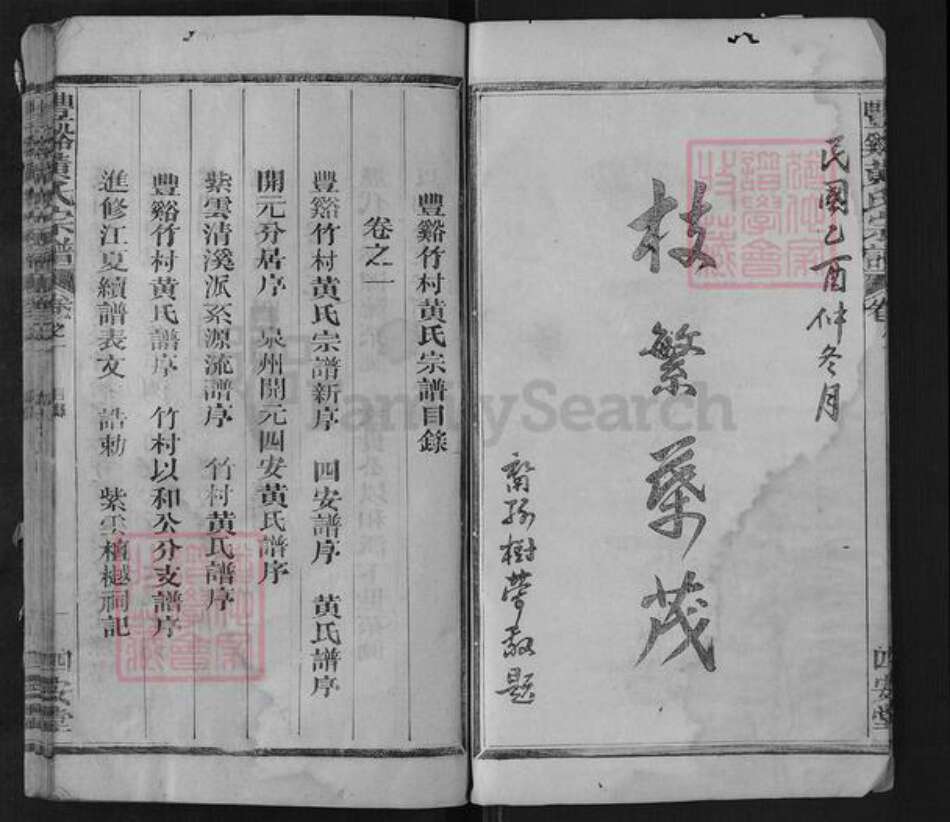 民國乙酉仲冬月
枝繁葉茂
裔孫樹榮敬題
豐谿黃氏宗譜
四安堂
豐谿竹村黃氏宗譜目錄
卷之一
豐谿竹村黃氏宗譜新序 四安譜序 黃氏譜序
開元分居序 泉州開元四安黃氏譜序
紫雲清溪派系源流譜序 竹村黃氏譜序
豐谿竹村黃氏譜序 竹村以和公分支譜序
進修江夏續譜表文 誥勅 紫雲檀樾祠記
豐谿黃氏宗譜 卷之一 目錄
四安堂
FamilySearch